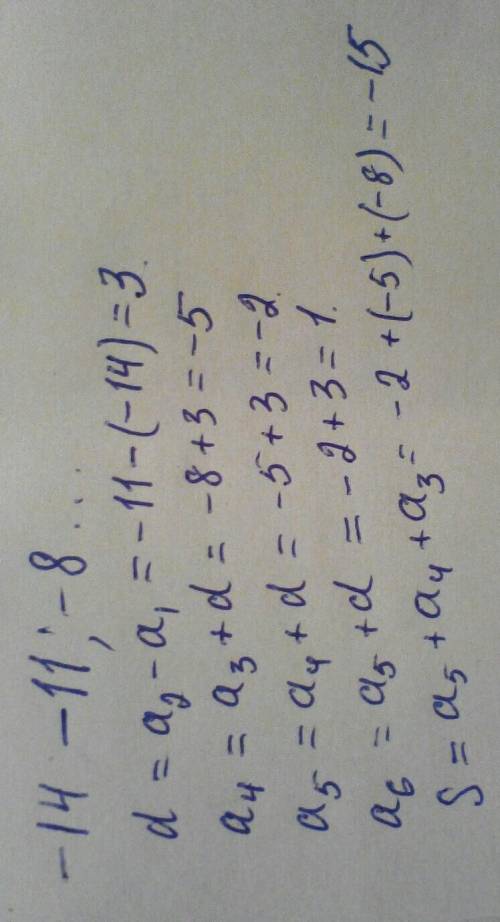 -14 -11; -8 ...
d = a₂ - a₁ = -11 - (-14) = 3.
a₄ = a₃ + d = -8 + 3 = -5
a₅ = a₄ + d = -5 + 3 = -2.
a₆ = a₅ + d = -2 + 3 = 1.
S = a₅ + a₄ + a₃ = -2 + (-5) + (-8) = -15